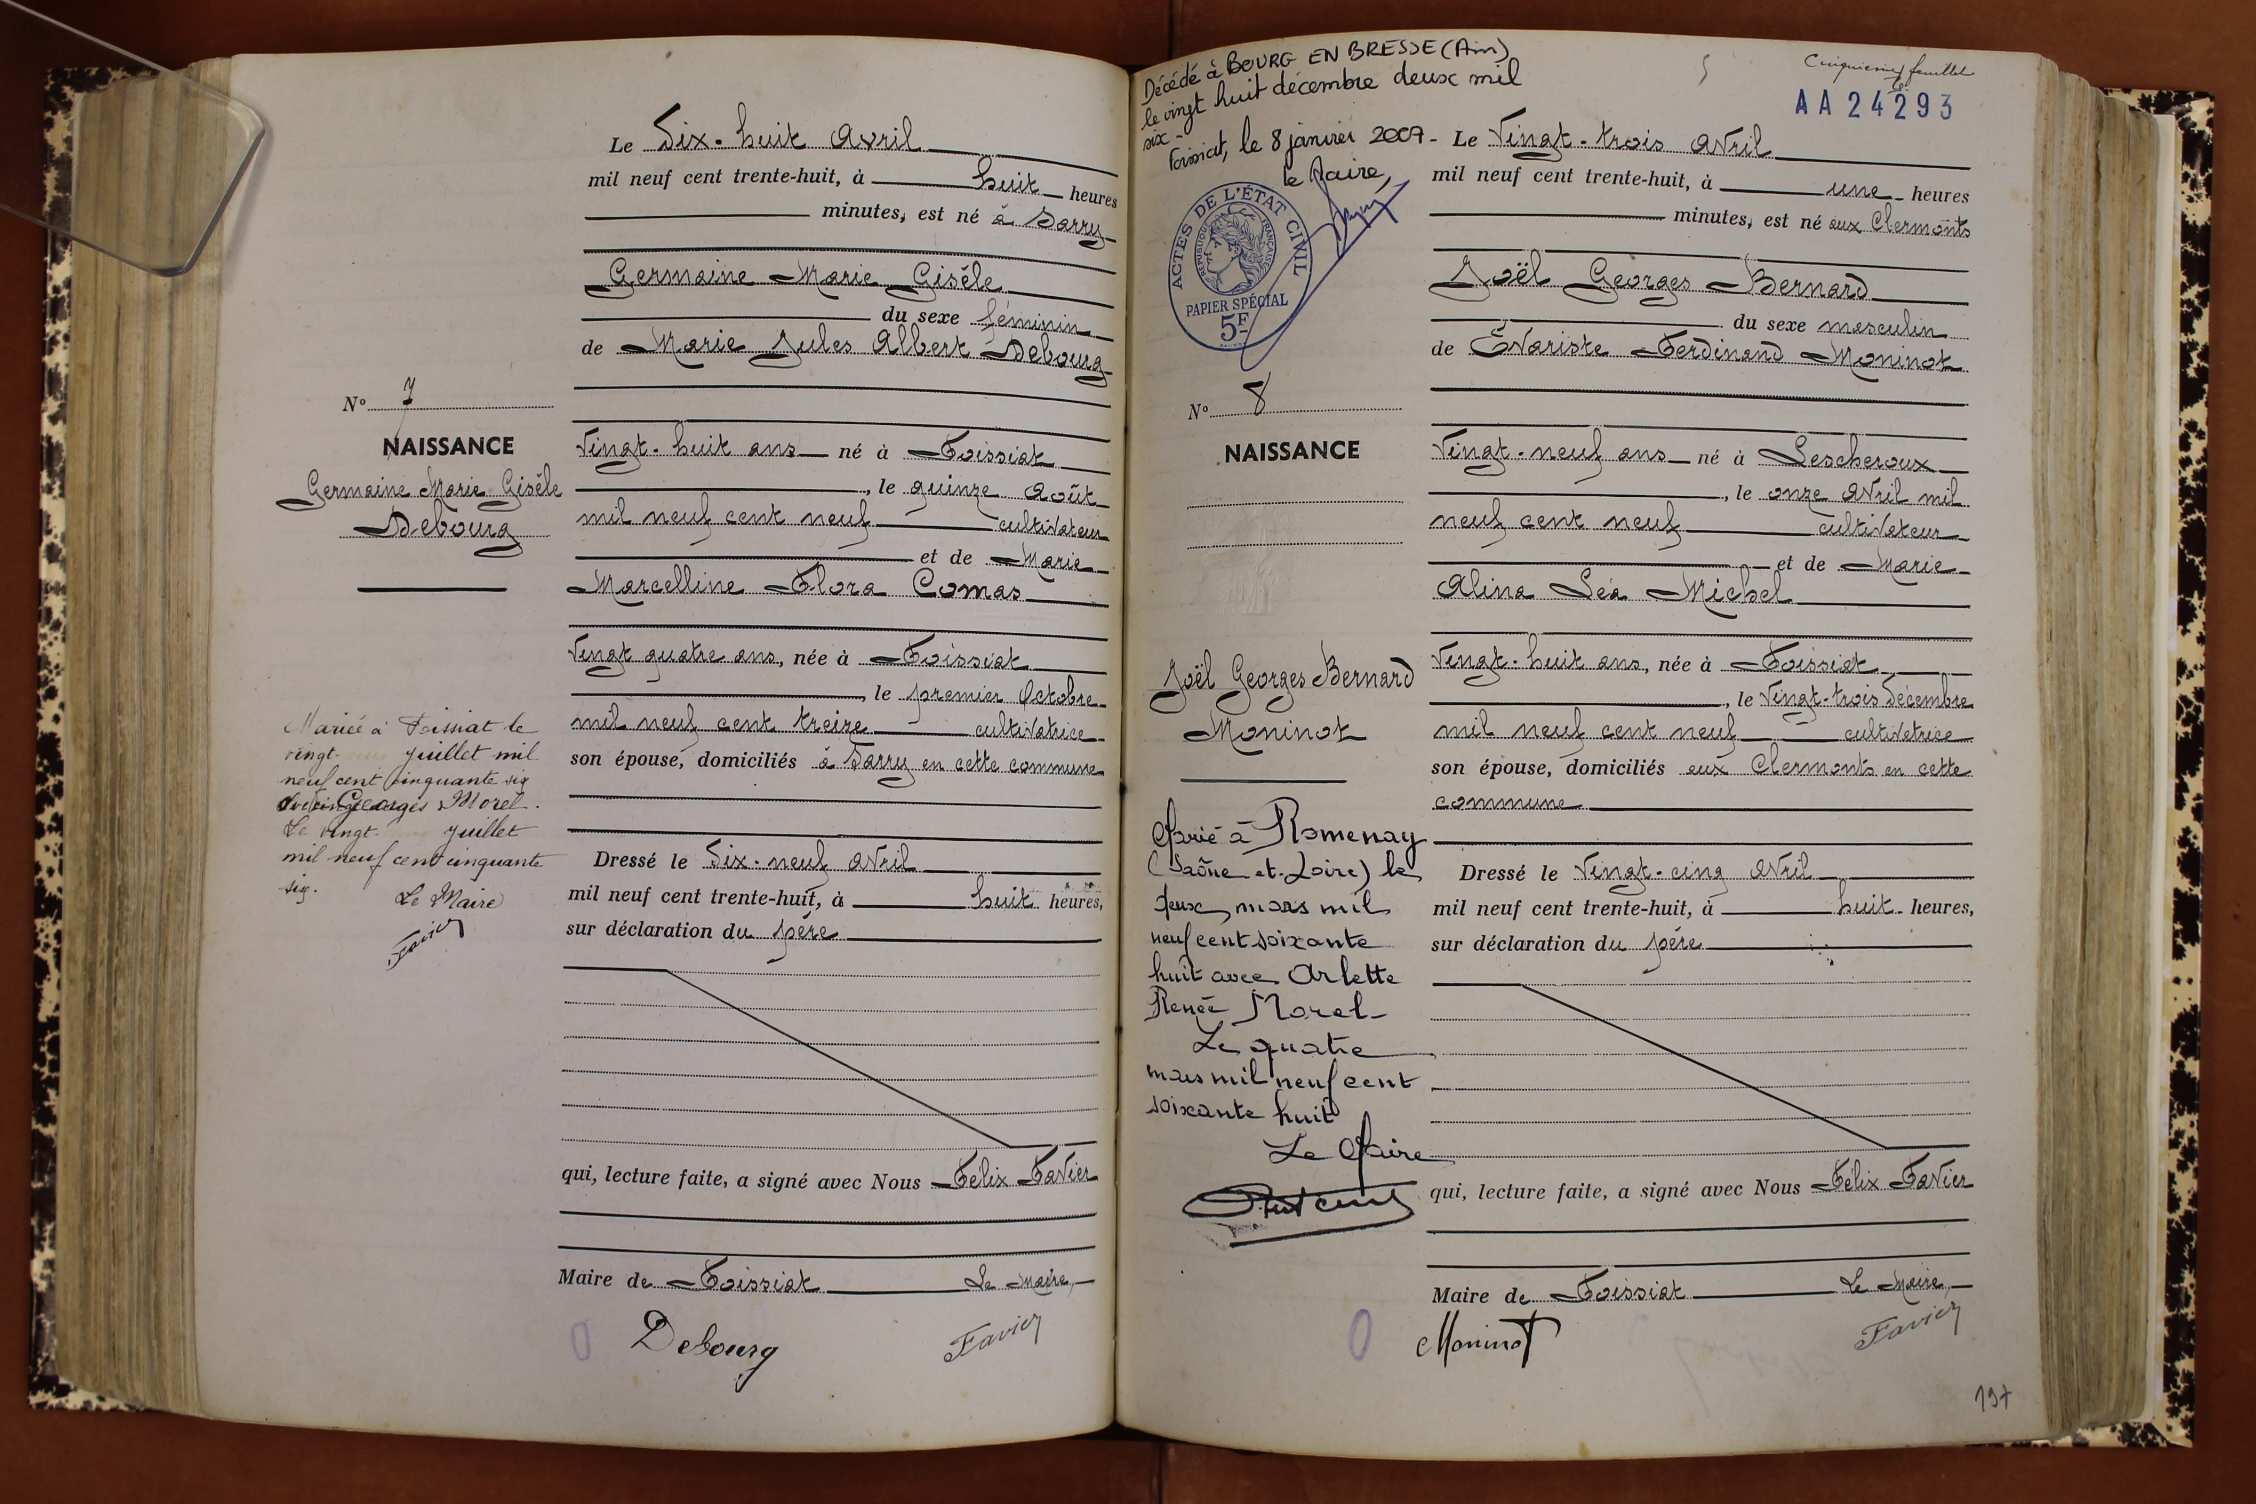 Le Dix-huit Avril
mil neuf cent trente-huit, à huit heures
minutes, est né à Sarry
Germaine Marie Gisèle
du sexe féminin
de Marie Jules Albert Debourg
N° 7
NAISSANCE
Germaine Marie Gisèle
Debourg
Vingt-huit ans né à Foissiat
, le quinze Août
mil neuf cent neuf cultivateur
et de Marie
Marcelline Flora Comas
Vingt quatre ans, née à Foissiat
, le premier Octobre
mil neuf cent treize cultivatrice
son épouse, domiciliés à Sarry en cette commune
Mariée à Foissiat le
vingt juillet mil
neuf cent cinquante six
Georges Morel.
Le vingt juillet
mil neuf cent cinquante
six. Le Maire
Favier
Dressé le Dix-neuf Avril
mil neuf cent trente-huit, à huit heures,
sur déclaration du père
qui, lecture faite, a signé avec Nous Félix Favier
Maire de Foissiat Le Maire,
Debourg Favier
Décédé à BOURG EN BRESSE (Ain)
le vingt huit décembre deux mil
six -
Foissiat, le 8 janvier 2007 -
le Maire,
ACTES DE L'ÉTAT CIVIL
RÉPUBLIQUE FRANÇAISE
PAPIER SPÉCIAL
5F
5
Cinquième feuillet
AA24293
Le Vingt-trois Avril
mil neuf cent trente-huit, à une heures
minutes, est né aux Clermonts
Joël Georges Bernard
du sexe masculin
de Évariste Ferdinand Moninot
N° 8
NAISSANCE
Joël Georges Bernard
Moninot
Vingt-neuf ans né à Lescheroux
, le onze Avril mil
neuf cent neuf cultivateur
et de Marie
Alina Léa Michel
Vingt-huit ans, née à Foissiat
, le Vingt-trois Décembre
mil neuf cent neuf cultivatrice
son épouse, domiciliés aux Clermonts en cette
commune
Marié à Romenay
(Saône-et-Loire) le
deux mars mil
neuf cent soixante
huit avec Arlette
Renée Morel-
Le quatre
mars mil neuf cent
soixante huit
Le Maire
Dressé le Vingt-cinq Avril
mil neuf cent trente-huit, à huit heures,
sur déclaration du père
qui, lecture faite, a signé avec Nous Félix Favier
Maire de Foissiat Le Maire,
Moninot Favier
197